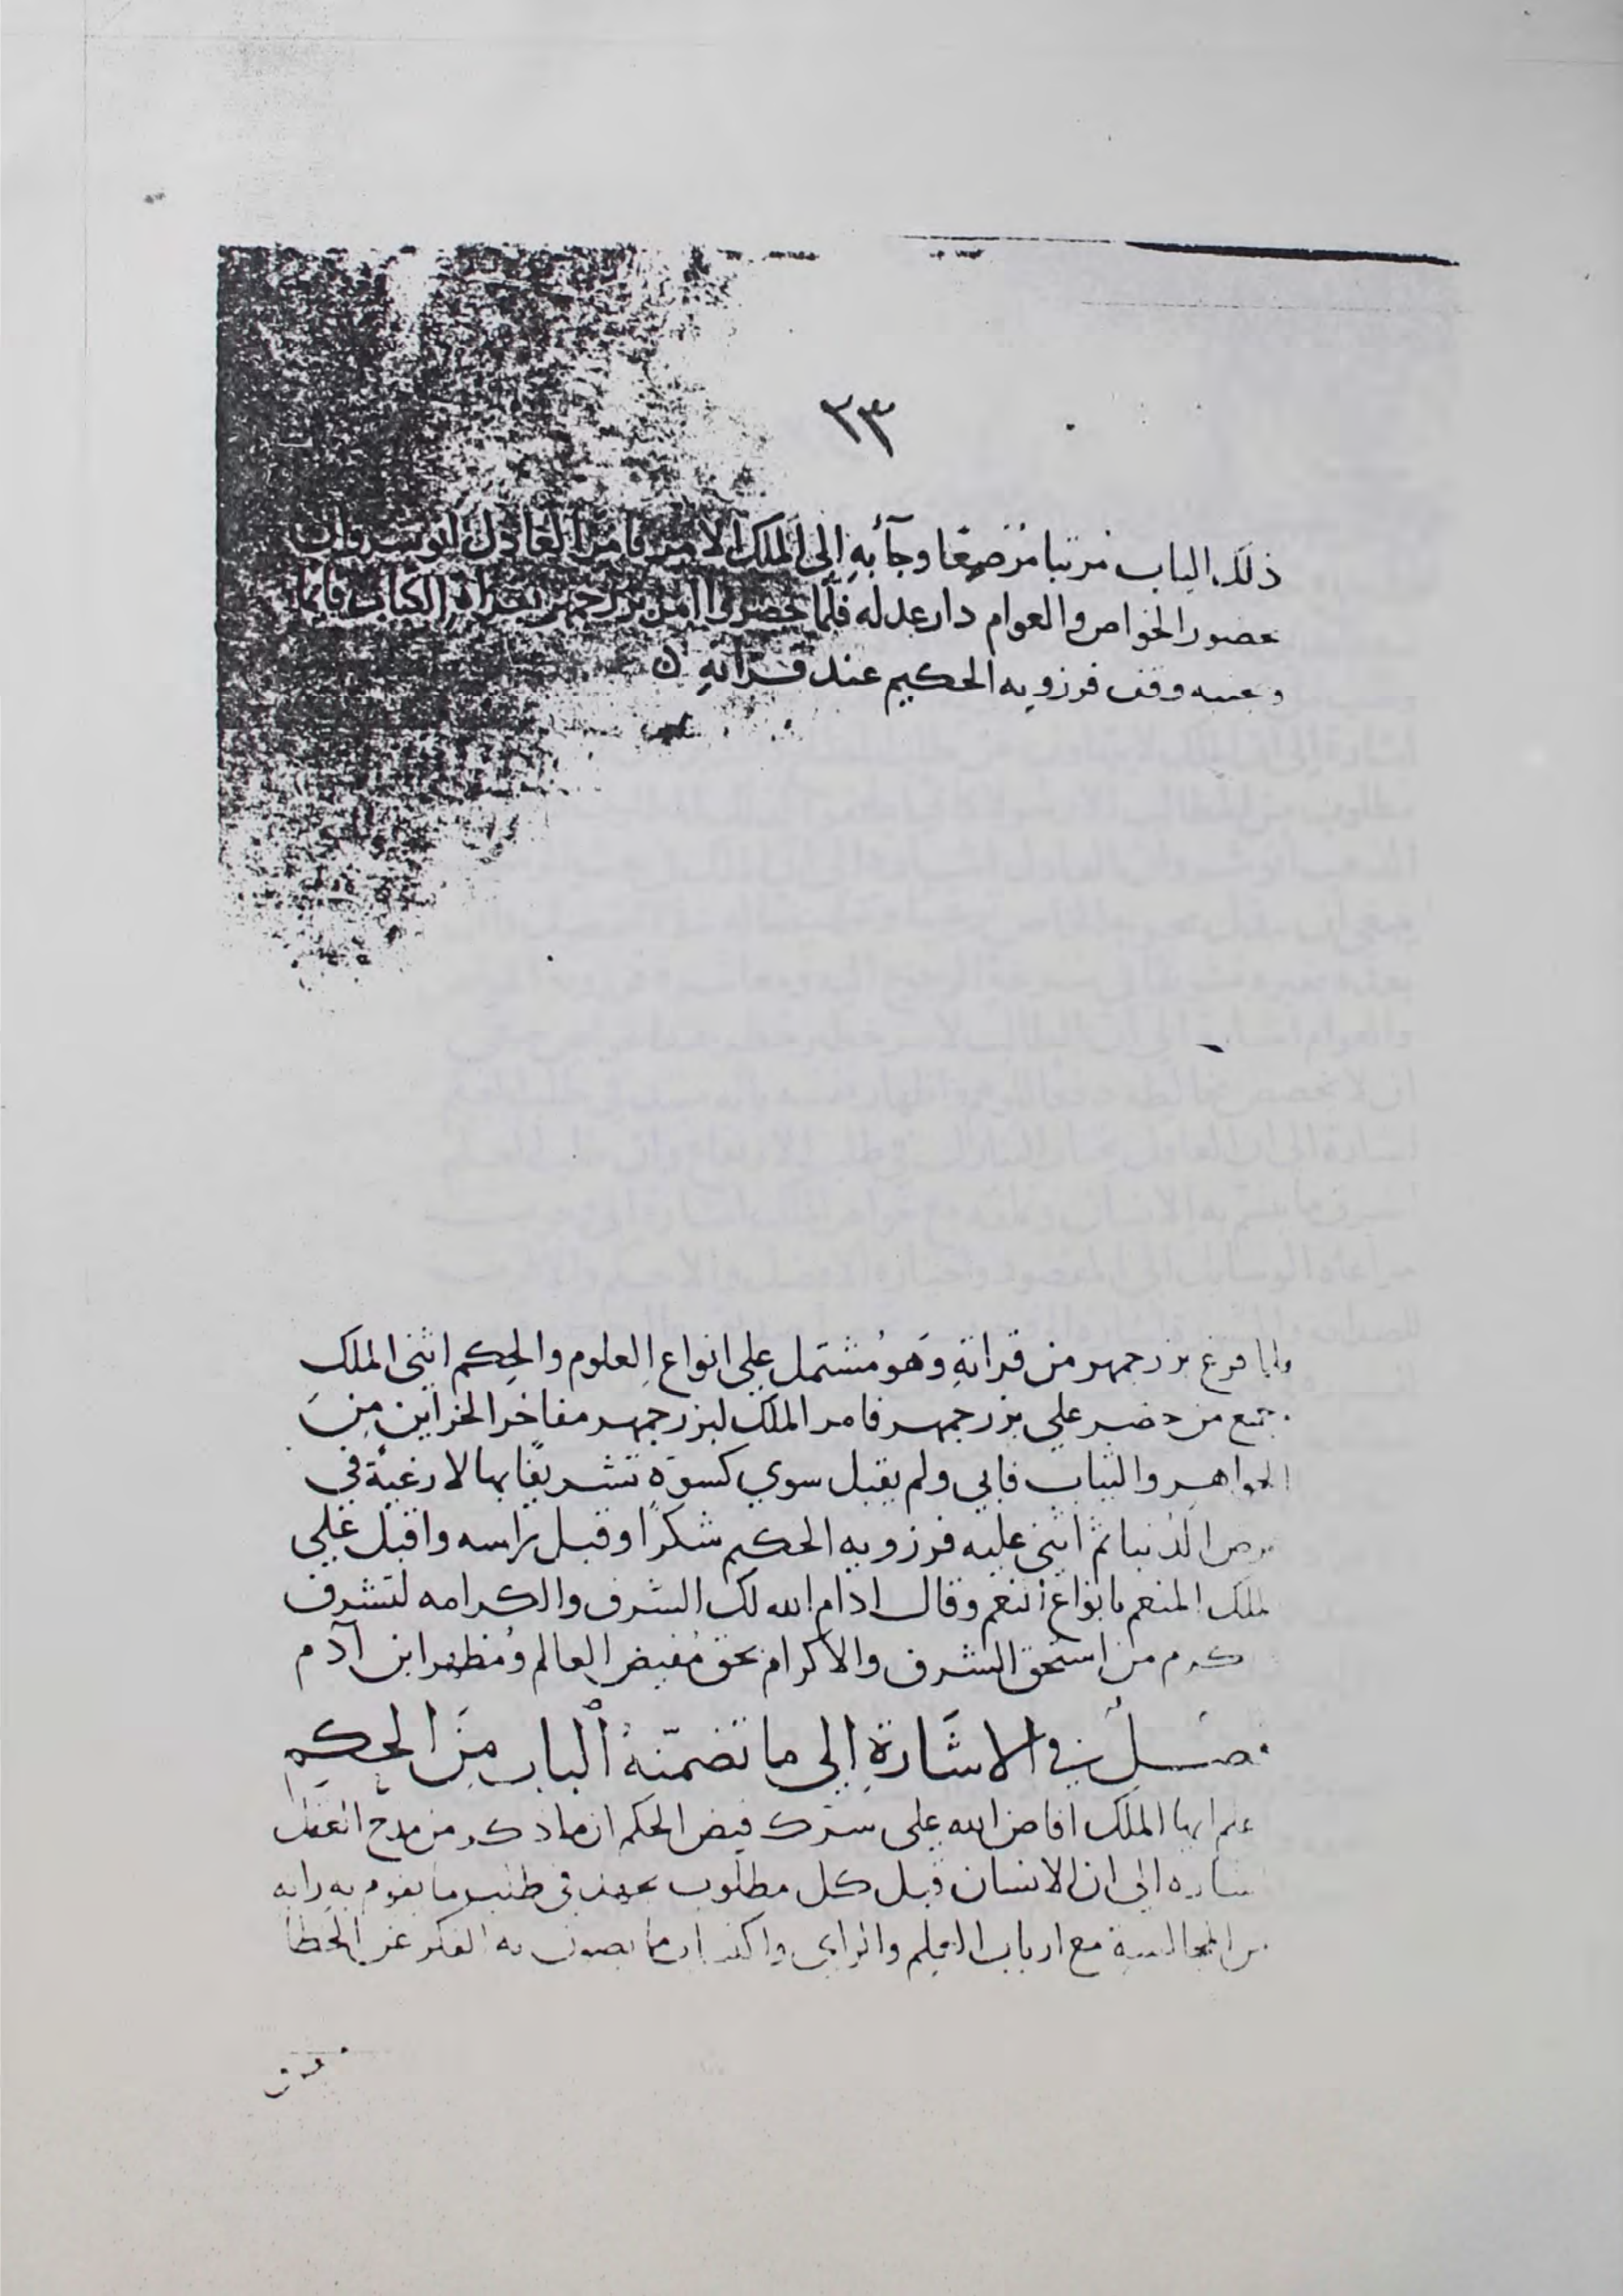 ٢٣
ذلك الباب مرتبا مرصعا وجآء به إلى الملك الآمر فامر العادل انوشروان
بحضور الخواص والعوام دار عدله فلما حضروا امر بزرجمهر بقراة الكتاب قائما
وقف فرزويه الحكيم عند قراته
ولما فرغ بزرجمهر من قراته وهو مشتمل على انواع العلوم والحكم اثنى الملك
جميع من حضر على بزرجمهر فامر الملك لبزرجمهر مفاخر الخزاين من
الجواهر والثياب فابى ولم يقبل سوي كسوة تشريفا بها لا رغبة في
الدنيا ثم اثنى عليه فرزويه الحكيم شكرا وقبل راسه واقبل على
الملك المنعم بانواع النعم وقال ادام الله لك الشرف والكرامه لتشرف
كرم من استحق الشرف والاكرام بحق مفيض العالم ومظهر ابن آدم
فصل في الاشارة إلى ما تضمنه الباب من الحكم
علم ايها الملك افاض الله على سرك فيض الحكم ان ما ذكر من مدح العقل
شاره الى ان الانسان قبل كل مطلوب يجهد في طلب ما يقوم به رايه
من المجالسة مع ارباب العلم والراى ما يصون به الفكر عن الخطا